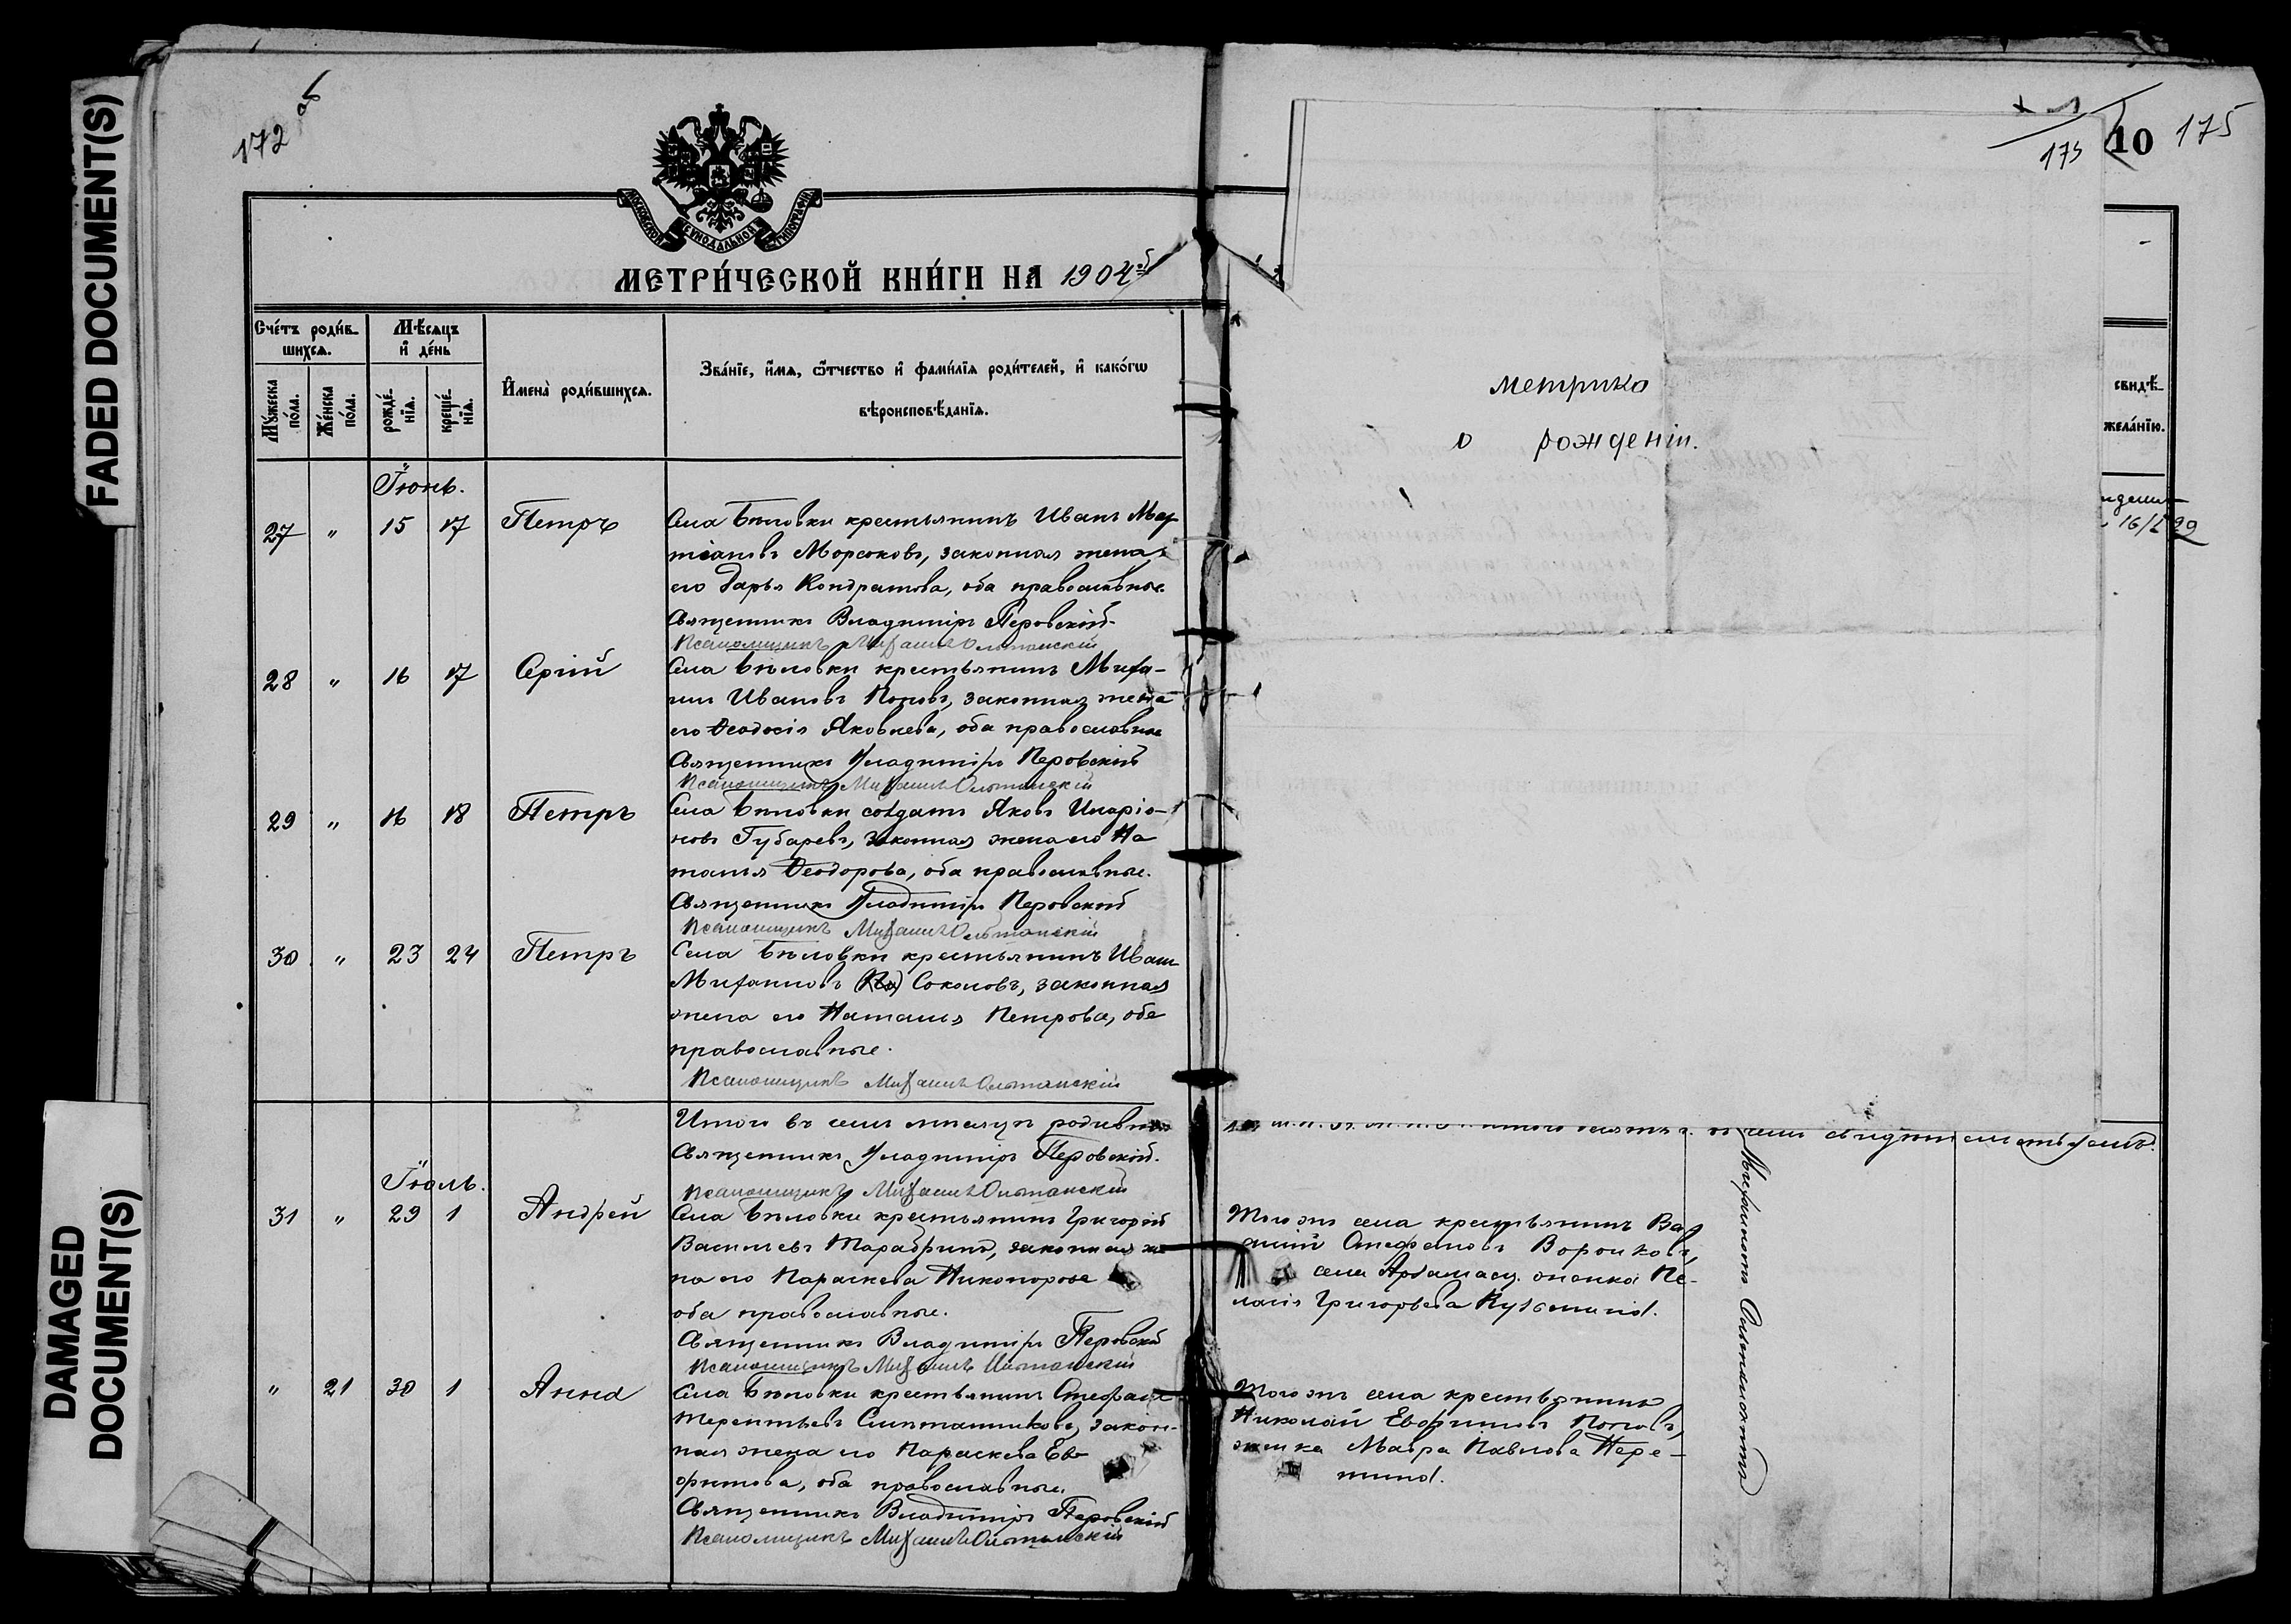 FADED DOCUMENT(S)
DAMAGED
DOCUMENT(S)
172 об
МОСКОВСКОЙ СѴНОДАЛЬНОЙ ТИПОГРАФІИ
МЕТРИ́ЧЕСКОЙ КНИ́ГИ НА 1904
Сче́тъ роди́в-
шихсѧ.
Мѣ́сѧцъ
и҆ де́нь
Мꙋ́жеска
по́ла.
Же́нска
по́ла.
рожде́-
нїѧ.
креще́-
нїѧ.
И҆мена̀ роди́вшихсѧ.
Зва́нїе, и҆́мѧ, ѻ҆́тчество и҆ фами́лїѧ роди́телей, и҆ како́гѡ
вѣроисповѣ́данїѧ.
Іюнь.
27 " 15 17 Петръ Села Бѣловки крестьянинъ Иванъ Мар-
тіановъ Морсоковъ, законная жена
его Дарья Кондратова, оба православные.
Священникъ Владиміръ Перовскій.
Псаломщикъ Михаилъ
28 " 16 17 Сергій Села Бѣловки крестьянинъ Миха-
илъ Ивановъ Поповъ, законная жена
его Ѳеодосія Яковлева, оба православные
Священникъ Владиміръ Перовскій
Псаломщикъ Михаилъ
29 " 16 18 Петръ Села Бѣловки солдатъ Яковъ Иларіо-
новъ Губаревъ, законная жена его На
талья Ѳеодорова, оба православные.
Священникъ Владиміръ Перовскій
Псаломщикъ Михаилъ
30 " 23 24 Петръ Села Бѣловки крестьянинъ Иванъ
Михаиловъ Соколовъ, законная
жена его Наталия Петрова, оба
православные.
Псаломщикъ Михаилъ
Итого въ семъ мѣсяцѣ
Священникъ Владиміръ Перовскій.
Іюль.
Псаломщикъ Михаилъ
31 " 29 1 Андрей Села Бѣловки крестьянинъ Григорій
Васильевъ Тарабринъ, законная же
на его Параскева Никонорова
оба православные.
Священникъ Владиміръ Перовскій
Псаломщикъ Михаилъ
" 21 30 1 Анна Села Бѣловки крестьянинъ Стефанъ
Терентьевъ Сметанниковъ, закон-
ная жена его Параскева Ев
фимова, оба православные.
Священникъ Владиміръ Перовскій
Псаломщикъ Михаилъ
173
10
175
метрика
о рожденіи.
свидѣ-
жела́нїю.
16/I 99
Тогожъ села крестьянинъ Ва
силій Стефановъ Воронковъ,
села женка Пе-
лагія Григорьева Кузьмина.
Тогожъ села крестьянинъ
Николай Евфимовъ Поповъ,
женка Мавра Павлова Пере-
тина.